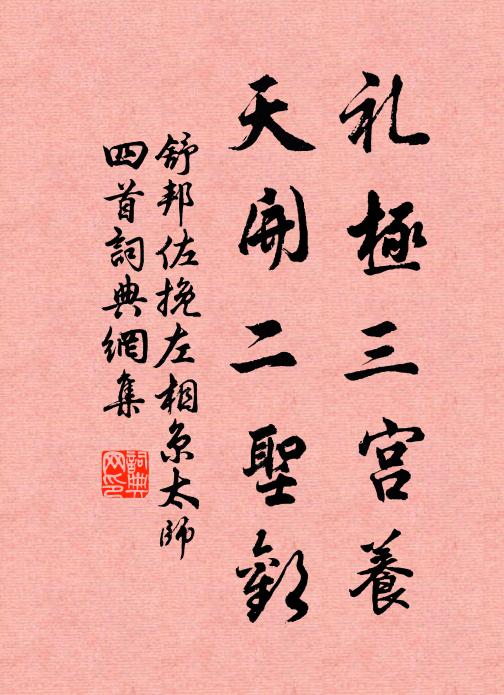 礼極三宫養
天開二聖歡
舒邦佐挽左相京太師
四首詞典網集
詞典
网印